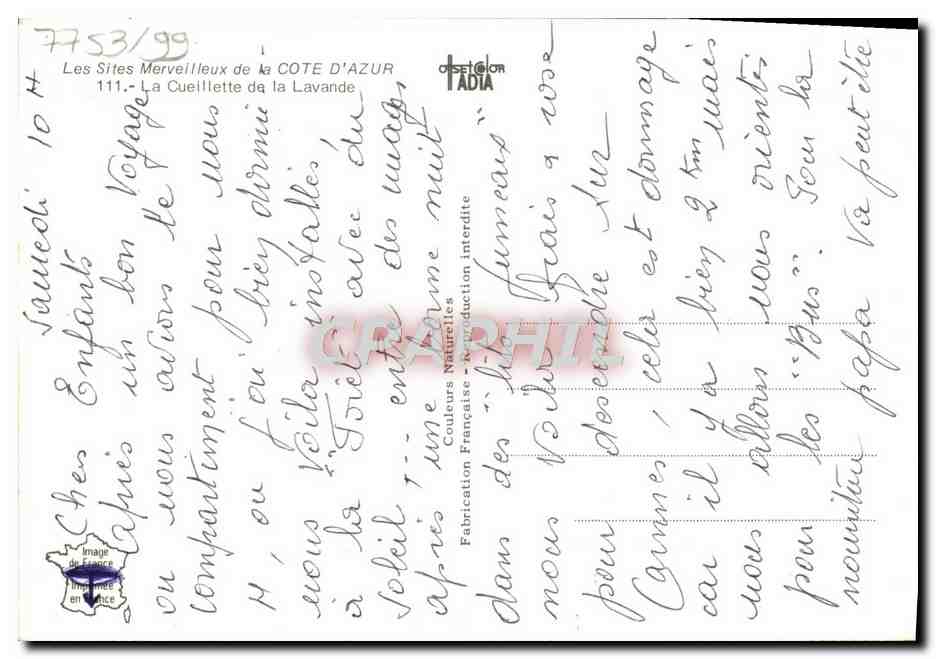 7753/99
Les Sites Merveilleux de la COTE D'AZUR
111.- La Cueillette de la Lavande
OFFSET COLOR
IADIA
Couleurs Naturelles
Fabrication Française - Reproduction interdite
Image
de France
Imprimée
en France
CRAPHIL
Samedi 10 H
Chers Enfants
après un bon voyage
ou nous avions le
compartiment pour nous
4, ou bien dormi
nous Voila installés,
à la "Forêt" avec du
soleil, -- entre des nuages
après une bonne nuit
dans des "lits Jumeaux"
nous Voila frais a rose
pour descendre sur
Cannes, cela est dommage
car il y a bien 2 km mais
nous allons nous orientés
pour les "Bus". Pour la
nourriture papa va peut être